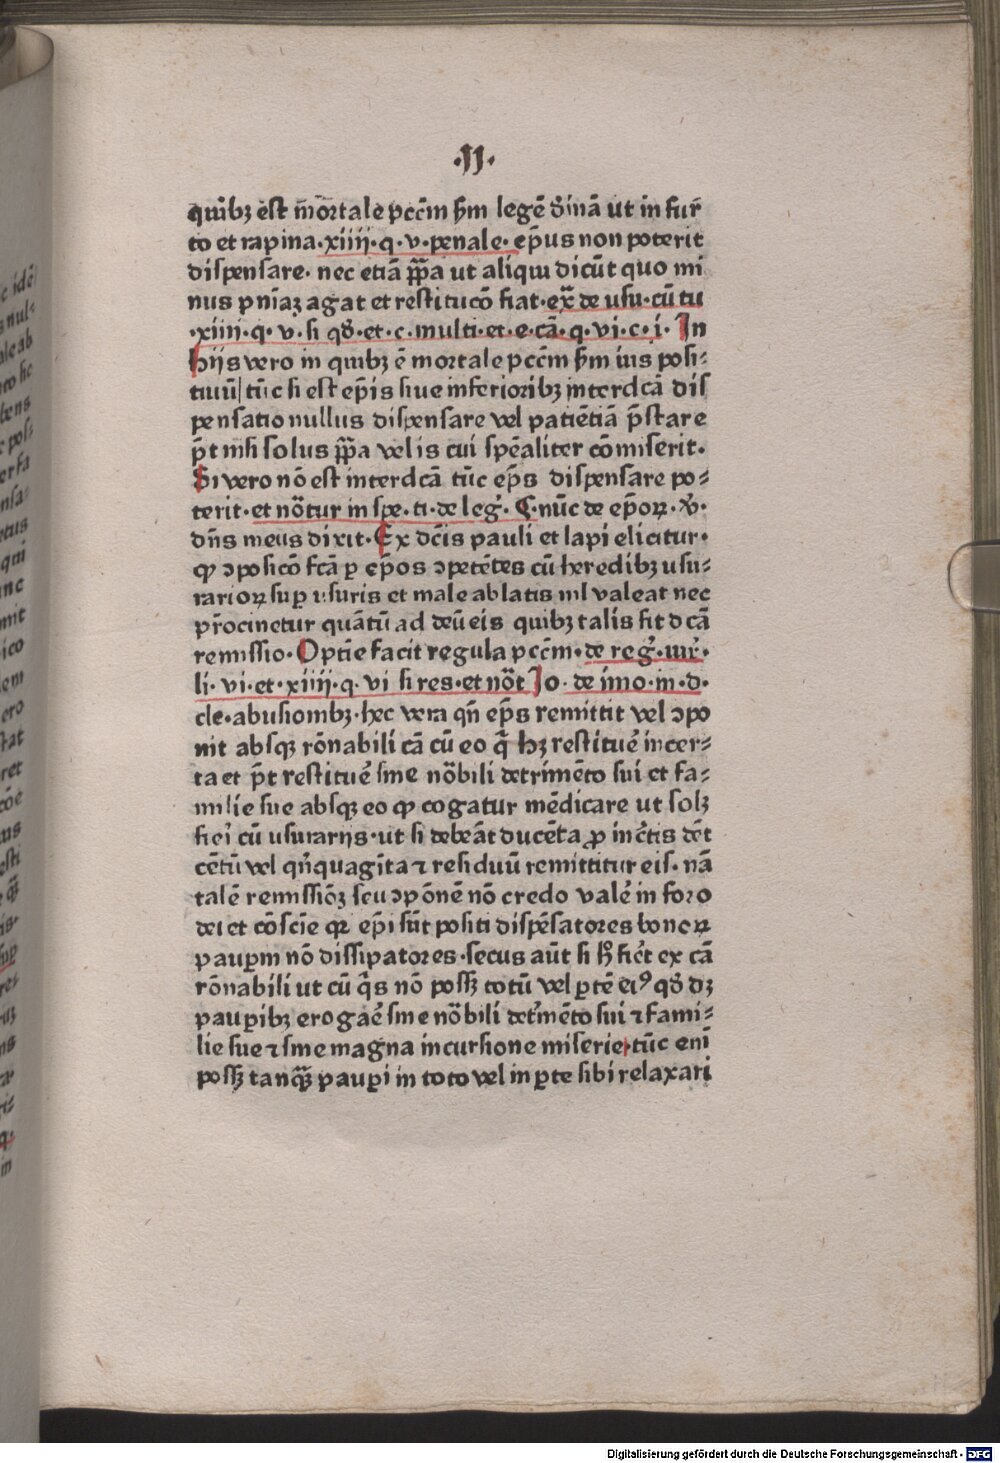 ·II·
quibꝫ est m̄ortale pcc̄m ẜm legē diuinā ut in fur
to et rapina·xiiii·q·v·penale· ep̄us non poterit
dispensare· nec etiā pp̄a ut aliqui dicūt quo mi
nus pnīaꝫ agat et restitucō fiat·ex̄ de usu·cū tu
·xiiii·q·v·si qd̄·et·c·multi·et·e·cā·q·vi·c·i· In
hijs vero in quibꝫ ē mortale pcc̄m ẜm ius posi⸗
tiuū tūc si est ep̄is siue inferioribꝫ interdcā dis
pensatio nullus dispensare vel patiētiā p̄stare
p̄t nisi solus pp̄a vel is cui spēaliter cōmiserit·
Si vero nō est interdcā tūc ep̄s dispensare po⸗
terit·et nōtur in spe·ti·de leg̕· C·nūc de ep̄oꝝ·v̄·
dn̄s meus dixit·Ex dc̄is pauli et lapi elicitur·
ꝙ ↄposicō fcā p ep̄os ↄpetētes cū heredibꝫ usu⸗
rarioꝝ sup usuris et male ablatis nl valeat nec
pr̄ocinetur quātū ad deū eis quibꝫ talis fit dcā
remissio·Optīe facit regula pcc̄m·de reg̕·iur̕·
li·vi·et·xiiii·q·vi si res·et nōt Jo· de īmo·in·d·
cle·abusionibꝫ·hec vera qn̄ ep̄s remittit vel ↄpo
nit absqꝫ rōnabili cā cū eo q̄ hꝫ restituē incer⸗
ta et p̄t restituē sine nōbili detrimēto sui et fa⸗
milie sue absqꝫ eo ꝙ cogatur mēdicare ut solꝫ
fieri cū usurarijs·ut si debeāt ducēta ꝓ inc̄tis dēt
cētū vel qn̄quagīta ⁊ residuū remittitur eis· nā
talē remissiōꝫ seu ↄpōnē nō credo valē in foro
dei et cōscīe qꝛ ep̄i sūt positi dispēsatores bonoꝝ
paupm nō dissipatores·secus aūt si hͦ fiēt ex cā
rōnabili ut cū q̄s nō possꝫ totū vel ptē eiꝰ qd̄ dꝫ
paupibꝫ erogaē sine nōbili det̄mēto sui ⁊ fami⸗
lie sue ⁊ sine magna incursione miserie·tūc enī
possꝫ tanqꝫ paupi in toto vel in pte sibi relaxari
Digitalisierung gefördert durch die Deutsche Forschungsgemeinschaft - DFG